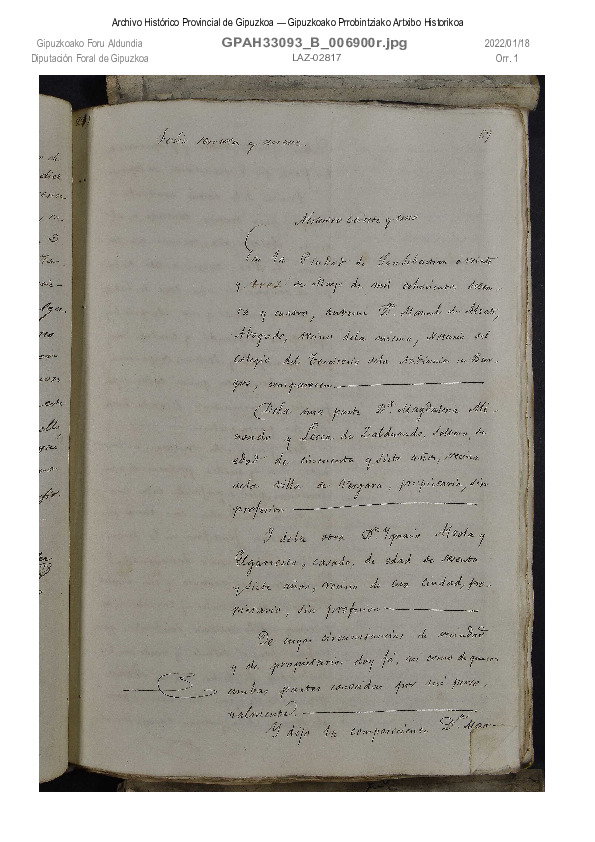 Archivo Histórico Provincial de Gipuzkoa — Gipuzkoako Prrobintziako Artxibo Historikoa
Gipuzkoako Foru Aldundia
Diputación Foral de Gipuzkoa
GPAH33093_B_006900r.jpg
LAZ-02817
2022/01/18
Orr. 1
y
Número y uno
En la Ciudad de San Sebastian a veinte
y tres de Mayo de mil ochocientos sesen-
ta y nueve, ante mi Dn. Manuel de
Abogado, vecino de la misma, Notario del
colegio del Territorio de la Audiencia de Bur-
gos, comparecen.
De la una parte Dª Magdalena
y de Zalduondo, soltera, de
edad de cincuenta y siete años, vecina
de la villa de Vergara, propietaria, sin
profesion
Y de la otra Dn. Ignacio y
casado, de edad de sesenta
y siete años, vecino de esta ciudad, pro-
pietario, sin profesion
De cuyas circunstancias de vecindad
y de propietarios doy fé, asi como de que son
ambas partes conocidas por mi perso-
nalmente.
Y dijo la compareciente Dª Mag-